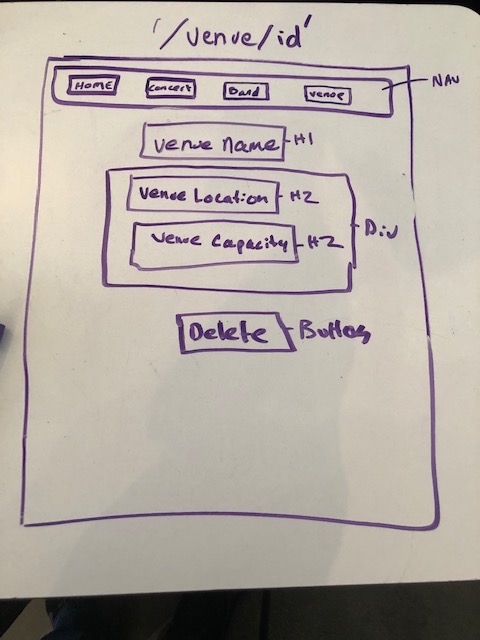 '/venue/id'
Home Concert Band Venue NAV
Venue Name H1
Venue Location H2
Venue Capacity H2
Div
Delete Button